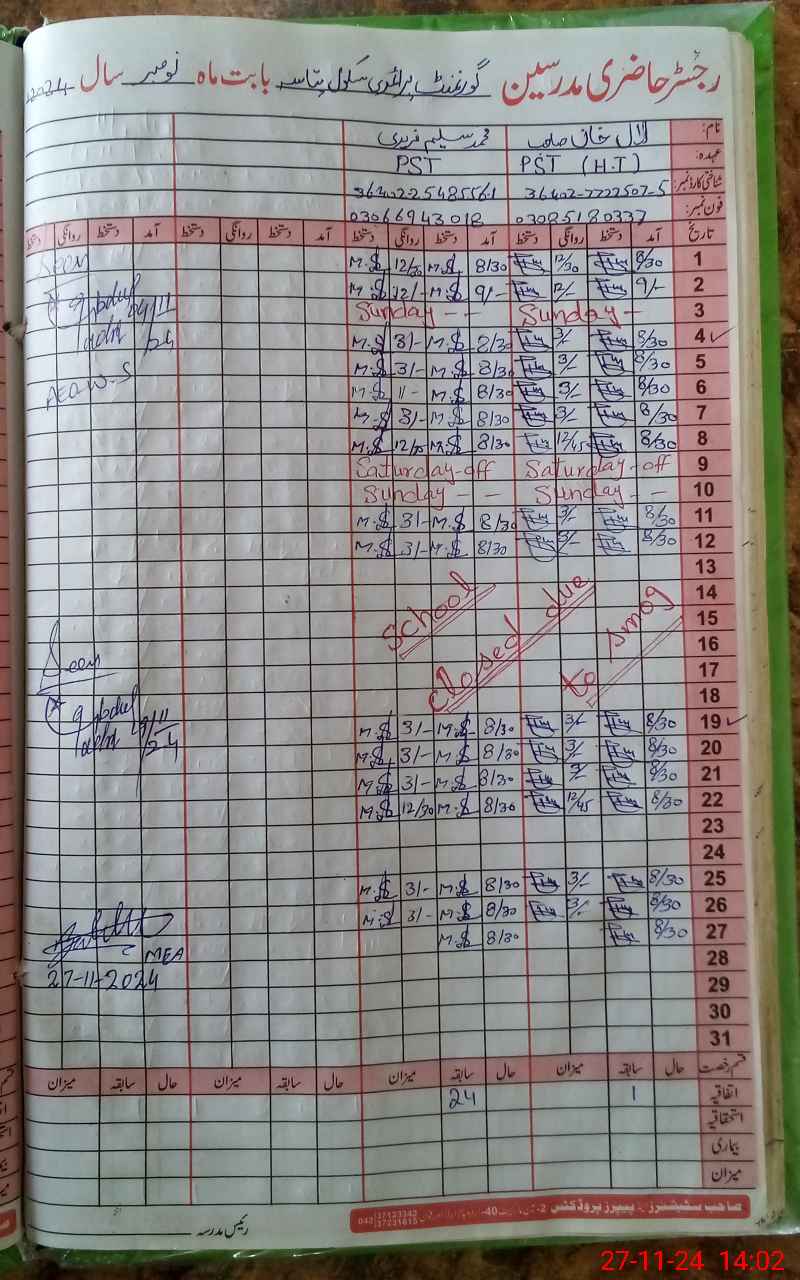 رجسٹر حاضری مدرسین گورنمنٹ پرائمری سکول بابت ماہ نومبر سال 2024
نام: لال خان صاحب محمد سلیم فریدی
عہدہ: PST (H.T) PST
شناختی کارڈ نمبر: 36402-7222507-5 36402-25485561
فون نمبر: 03085180337 03066943018
تاریخ آمد دستخط روانگی دستخط آمد دستخط روانگی دستخط آمد دستخط روانگی دستخط آمد دستخط روانگی دستخط
1 8/30 12/30 8/30 M.S 12/30 M.S Seen
2 9/- 12/- 9/- M.S 12/- M.S
3 Sunday - Sunday - -
4 8/30 3/- 8/30 M.S 3/- M.S
5 8/30 3/- 8/30 M.S 3/- M.S
6 8/30 3/- 8/30 M.S 11- M.S
7 8/30 3/- 8/30 M.S 3/- M.S
8 8/30 12/45 8/30 M.S M.S
9 Saturday-off Saturday-off
10 Sunday - - Sunday - -
11 8/30 3/- 8/30 M.S 3/- M.S
12 8/30 3/- 8/30 M.S 3/- M.S
13
14
15
16
17
18
School closed due to smog
Seen
19 8/30 3/- 8/30 M.S 3/- M.S
20 8/30 3/- 8/30 M.S 3/- M.S
21 8/30 3/- 8/30 M.S 3/- M.S
22 8/30 12/45 8/30 M.S 12/30 M.S
23
24
25 8/30 3/- 8/30 M.S 3/- M.S
26 8/30 3/- 8/30 M.S 3/- M.S
27 8/30 8/30 M.S
MEA
27-11-2024
28
29
30
31
قسم رخصت حال سابقہ میزان حال سابقہ میزان حال سابقہ میزان حال سابقہ میزان
اتفاقیہ 1 24
استحقاقیہ
بیماری
میزان
صاحب سٹیشنرز - پیپرز پروڈکٹس
042 37123342 37231615
رئیس مدرسہ
27-11-24 14:02